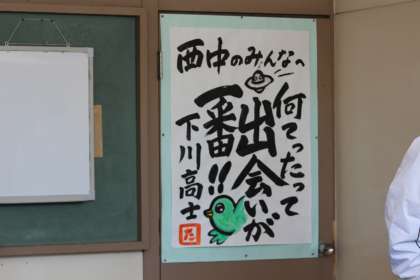 西中のみんなへ
何てったって
出会いが
一番!!
下川高士
た